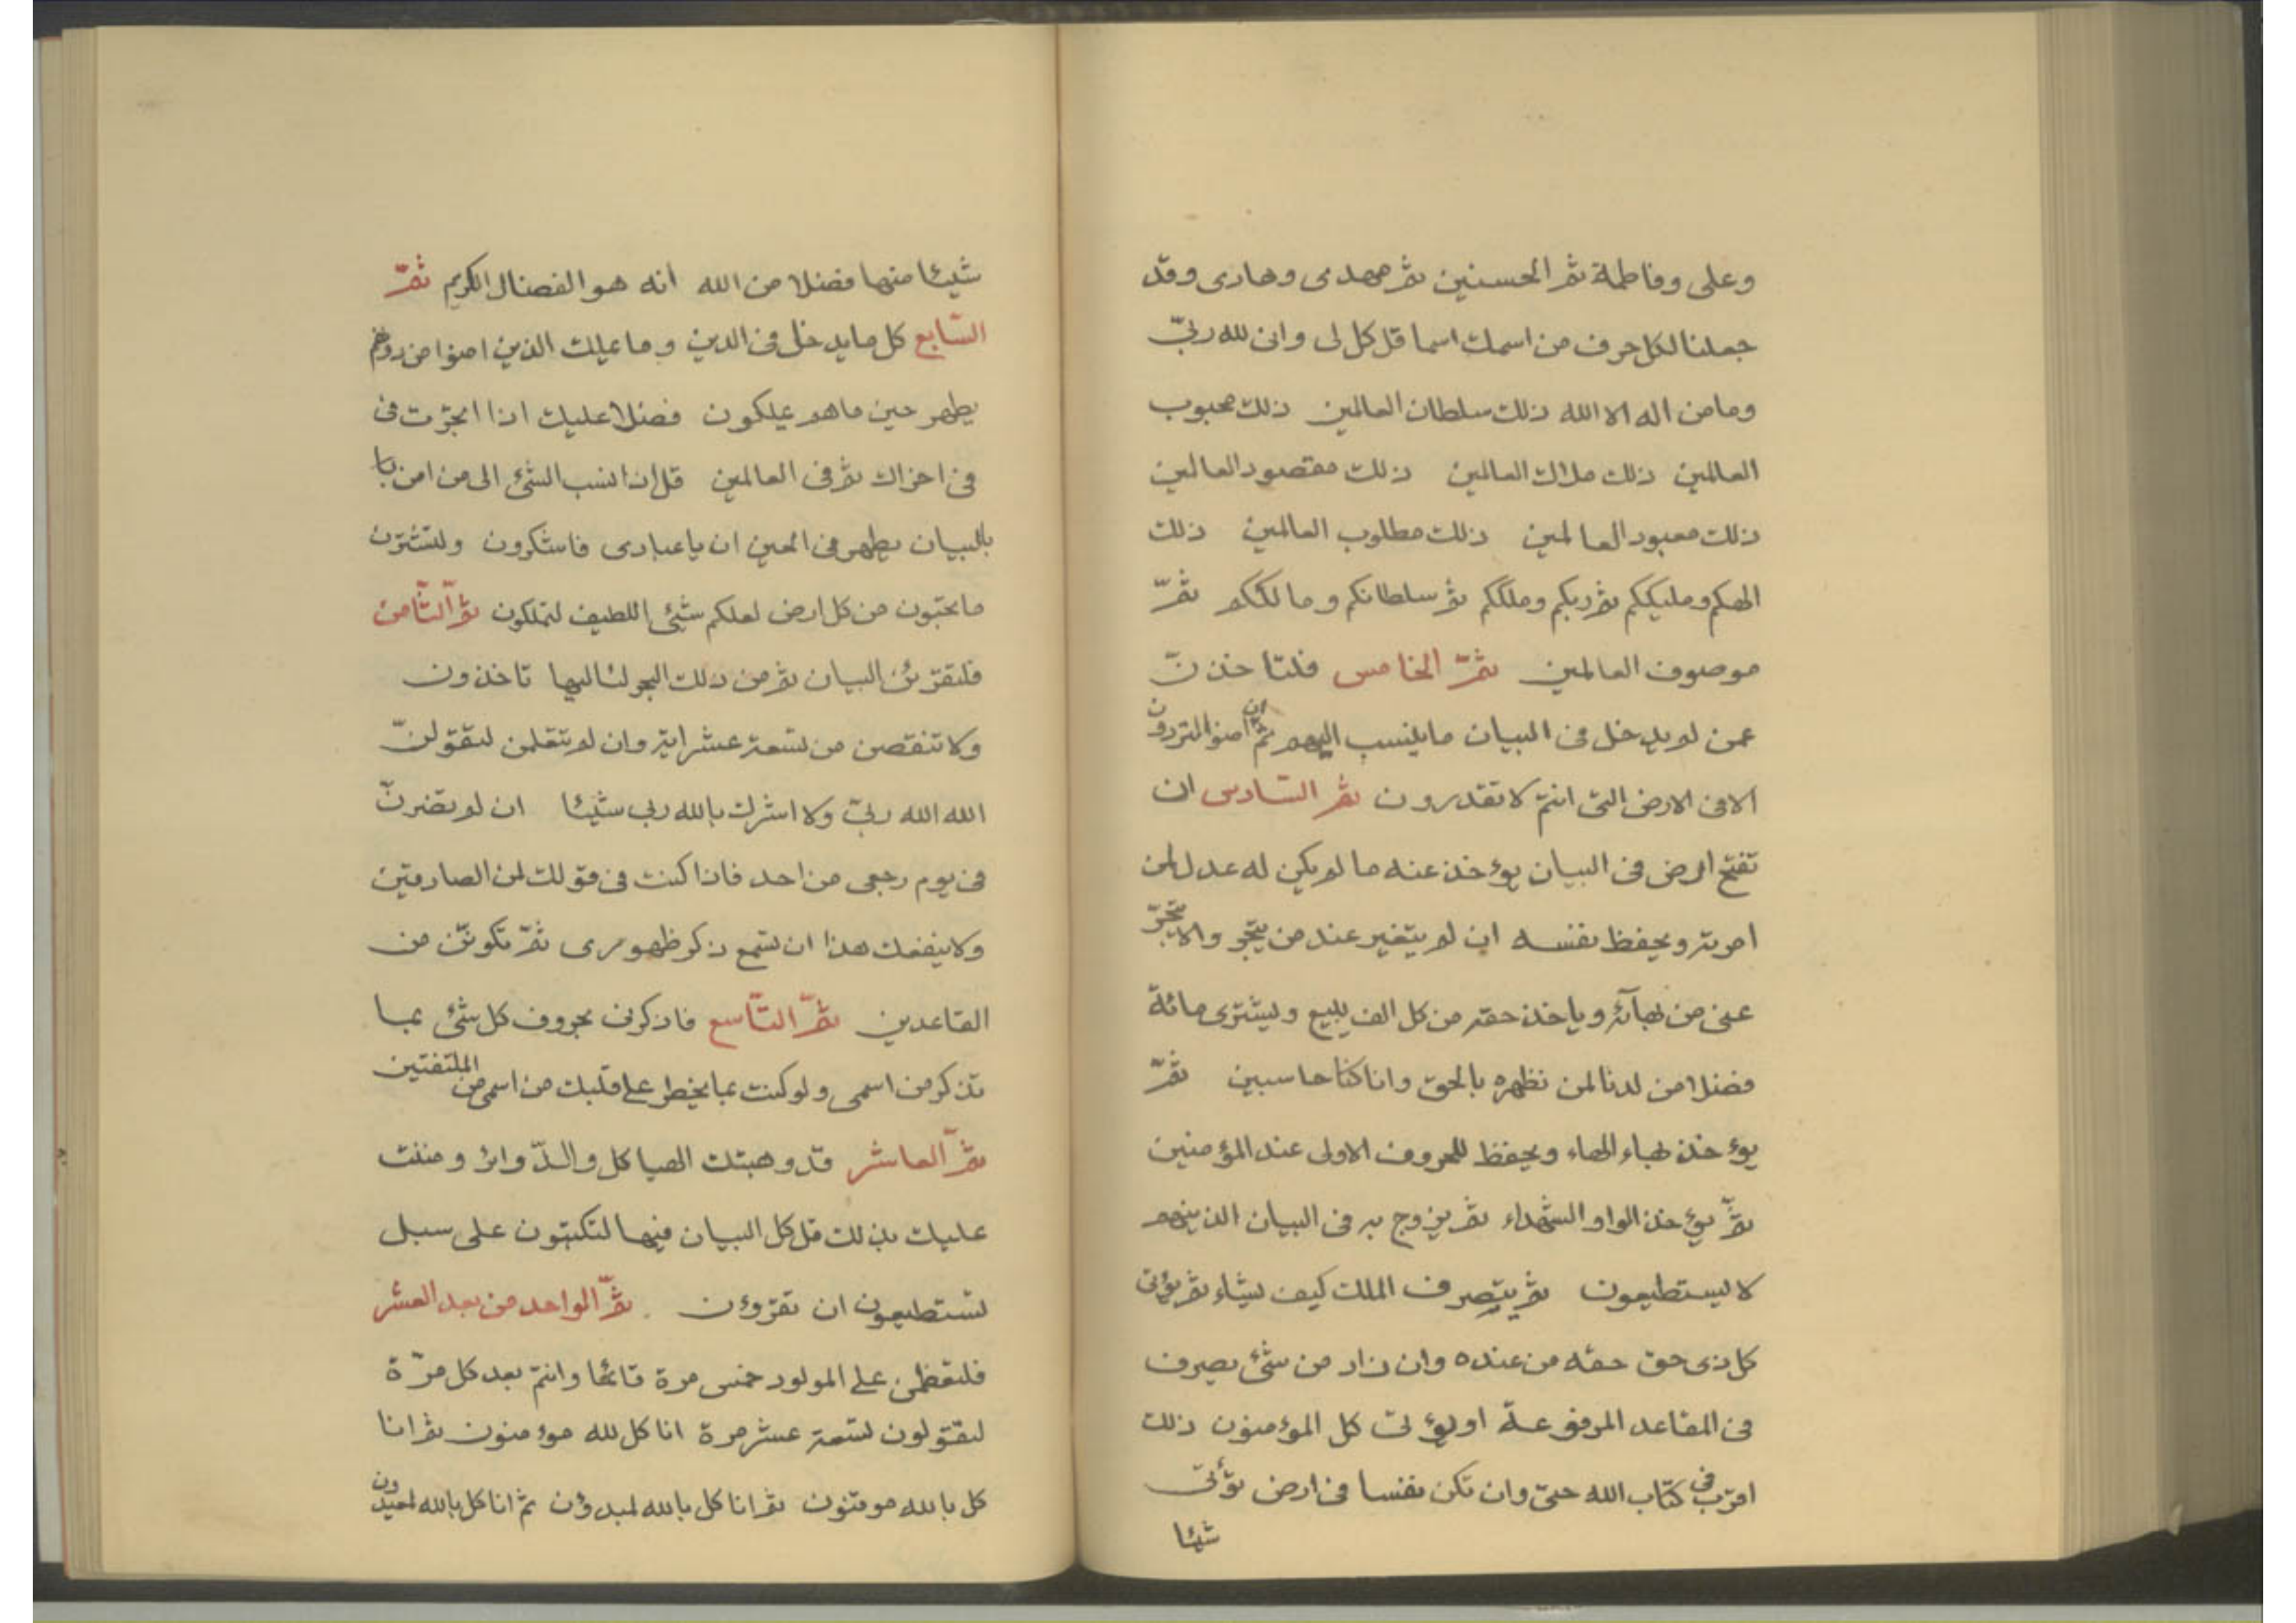 وعلى وفاطمة ثم الحسنين ثم مهدى وهادى وقد
جعلنا لكل حرف من اسمك اسما قل كل لى وانى لله ربّ
وما من اله الا الله ذلك سلطان العالمين ذلك محبوب
العالمين ذلك ملاك العالمين ذلك مقصود العالمين
ذلك معبود العالمين ذلك مطلوب العالمين ذلك
الهكم ومليككم ثم ربكم وملككم ثم سلطانكم ومالككم ثمّ
موصوف العالمين ثمّ الخامس فلتاخذنّ
عمن لم يدخل فى البيان ما ينسب اليهم ثم ان امنوا لتردون
الا فى الارض التى انتم لا تقدرون ثم السادس ان
تفتح ارض فى البيان يؤخذ عنه ما لم يكن له عدل لمن
امرته ويحفظ نفسه ان لم يتغير عند من يتجر والا يتجرّ
عنى من بهآئه وياخذ حقه من كل الف يبيع ويشترى مائة
فضلا من لدنا لمن نظهره بالحق وانا كنا حاسبين ثمّ
يؤخذ بهاء الهاء ويحفظ للحروف الاولى عند المؤمنين
ثمّ يؤخذ الواو الشهداء ثم يزوج به فى البيان الذينهم
لا يستطيعون ثم يتصرف الملك كيف يشاء ثم يؤتى
كل ذى حق حقه من عنده وان زاد من شئ يصرف
فى المقاعد المرفوعة او يؤتى كل المؤمنون ذلك
اقرب فى كتاب الله حتى وان تكن نفسا فى ارض تؤتى
شيئا
شيئا منها فضلا من الله انه هو الفضال الكريم ثمّ
السّابع كل ما يدخل فى الدين وما عليك الذين امنوا من دونهم
يطهر حين ما هم عليكون فضلا عليك اذا اتجرت فى
فى اخراك ثم فى العالمين قل اذا انسب الشئ الى من امن با
بالبيان يطهر فى الحين ان يا عبادى فاشكرون ولتشترن
ما تحبّون من كل ارض لعلكم شئ اللطيف لتملكون ثمّ الثّامن
فلتقرئن البيان ثم من ذلك البحر لئاليها تاخذون
ولا تنقصن من تسعة عشر اية وان لم تتعلمن لتقولنّ
الله الله ربى ولا اشرك بالله ربى شيئا ان لم تضرنّ
فى يوم رجعى من احد فاذا كنت فى قولك لمن الصادقين
ولا ينفعك هذا ان تسمع ذكر ظهورى ثمّ تكونن من
القاعدين ثمّ التّاسع فاذكرنى بحروف كل شئ بما
تذكر من اسمى ولو كنت بما يخطر على قلبك من اسمى من الملتفتين
ثمّ العاشر قد وهبتك الهياكل والدّوائر ومننت
عليك بذلك قل كل البيان فيها لتكتبون على سبل
تستطيعون ان تقرؤن ثمّ الواحد من بعد العشر
فلتعظمن على المولود خمس مرة قائما وانتم بعد كل مرّة
لتقولون تسعة عشر مرة انا كل لله مؤمنون ثم انا
كل بالله موقنون ثم انا كل بالله لمبدؤن ثم انا كل بالله لمعيدون